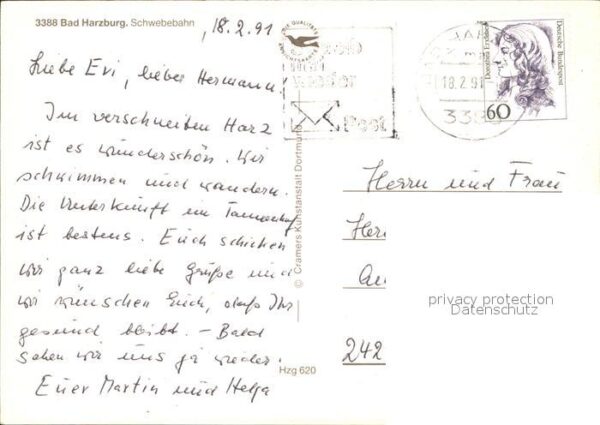 3388 Bad Harzburg. Schwebebahn
18.2.91
Liebe Evi, lieber Hermann
Im verschneiten Harz
ist es wunderschön. Wir
schwimmen und wandern.
Die Unterkunft im Tannenhof
ist bestens. Euch schicken
wir ganz liebe Grüße und
wir wünschen Euch, daß Ihr
gesund bleibt. – Bald
sehen wir uns ja wieder.
Euer Martin und Helga
© Cramers Kunstanstalt Dortmund
Hzg 620
mal
wieder
Post
18.2.91
338
Dorothea Erxleben
Deutsche Bundespost
60
Herrn und Frau
242
privacy protection
Datenschutz